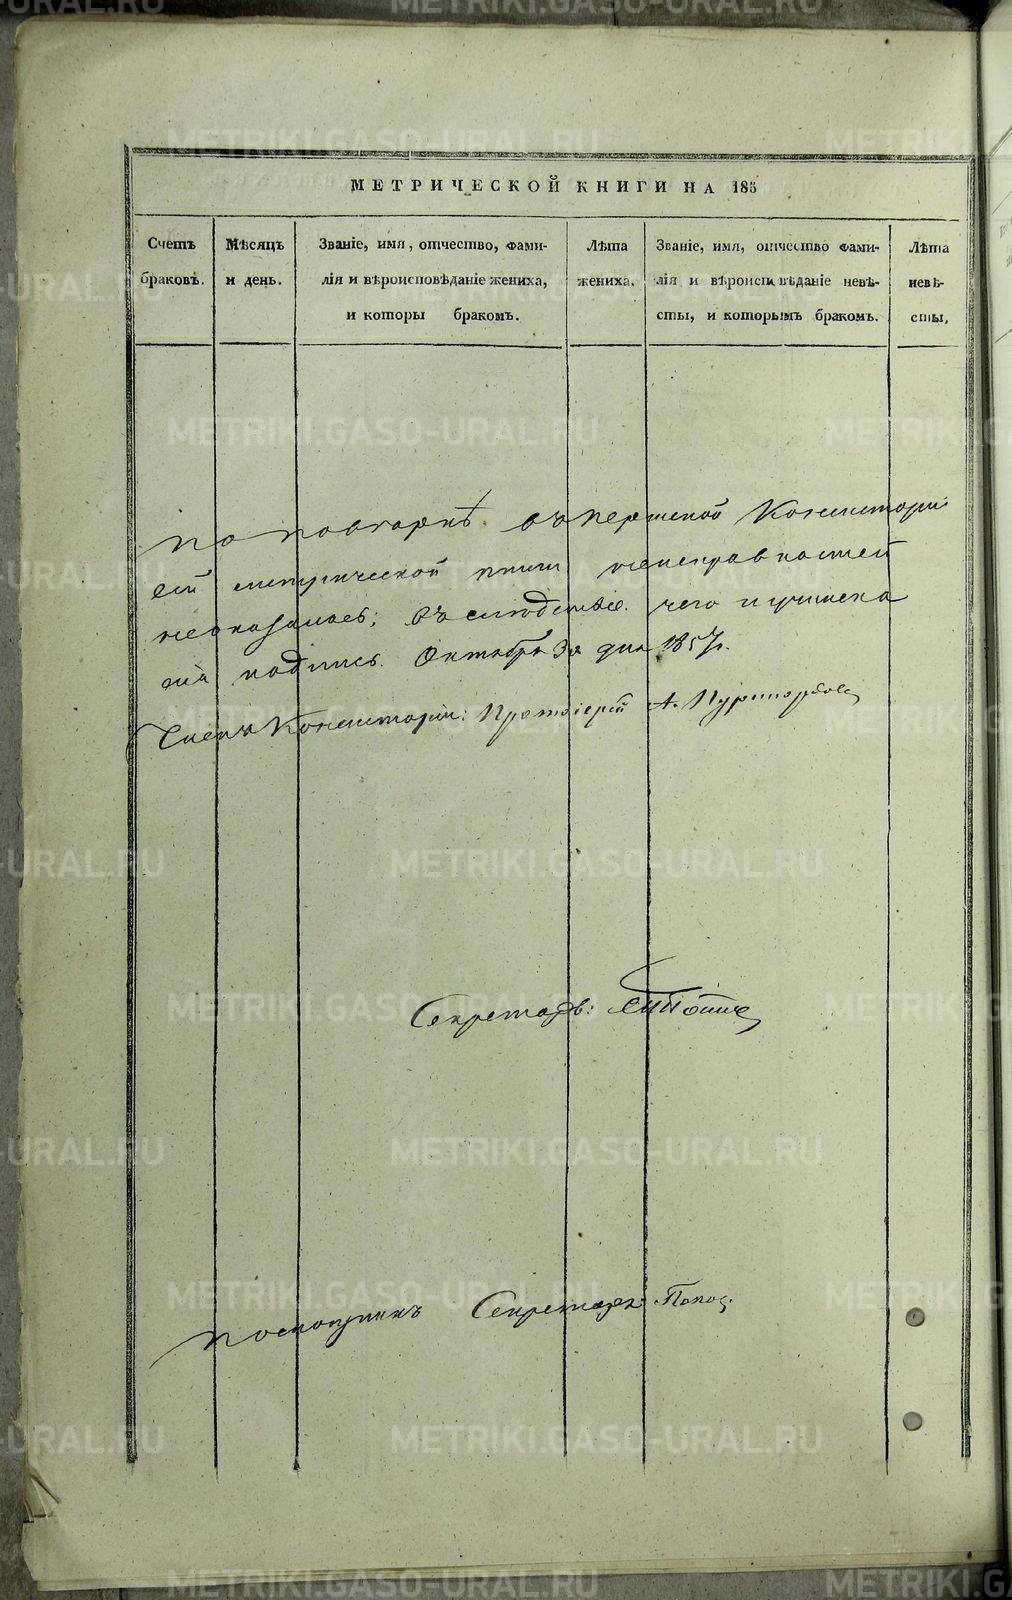 МЕТРИЧЕСКОЙ КНИГИ НА 185
Счетъ браковъ.
Мѣсяцъ и день.
Званіе, имя, отчество, фами-
лія и вѣроисповѣданіе жениха,
и которы бракомъ.
Лѣта жениха.
Званіе, имя, отчество фами-
лія и вѣроисповѣданіе невѣ-
сты, и которымъ бракомъ.
Лѣта невѣ-
сты,
По повѣркѣ въ Пермской Консисторіи
сей метрической книги неисправностей
неоказалось; въ слѣдствіе чего и учинена
сія подпись. Октября 30 дня 1857 г.
Членъ Консисторіи: Протоіерей А.
Секретарь:
Секретарь Попов
METRIKI.GASO-URAL.RU